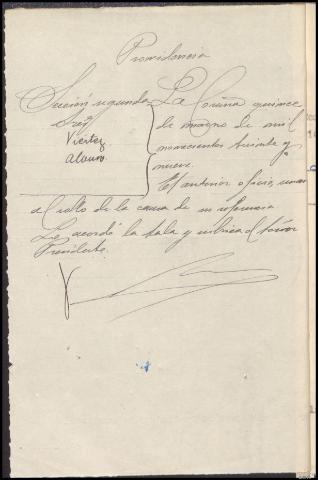 Providencia
Sección segunda
Sres
Vieitez
Alauro
La Coruña quince
de marzo de mil
novecientos treinta y
nueve.
El anterior oficio, unase
al rollo de la causa de su referencia
Lo acordó la Sala y rubrica el Señor
Presidente.